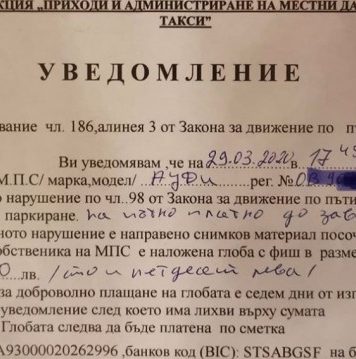 КЦИЯ „ПРИХОДИ И АДМИНИСТРИРАНЕ НА МЕСТНИ ДА
ТАКСИ”
УВЕДОМЛЕНИЕ
вание чл. 186,алинея 3 от Закона за движение по път
Ви уведомявам ,че на 29.03.2020 17 45
М.П.С/ марка,модел/ АУДИ рег. №
о нарушение по чл..98 от Закона за движение по пъти
паркиране. на пътно платно до
ното нарушение е направено снимков материал посоч
обственика на МПС е наложена глоба с фиш в разме
0 лв. /сто и петдесет лева/
за доброволно плащане на глобата е седем дни от изг
уведомление след което има лихви върху сумата
Глобата следва да бъде платена по сметка
A93000020262996 ,банков код (BIC): STSABGSF на б